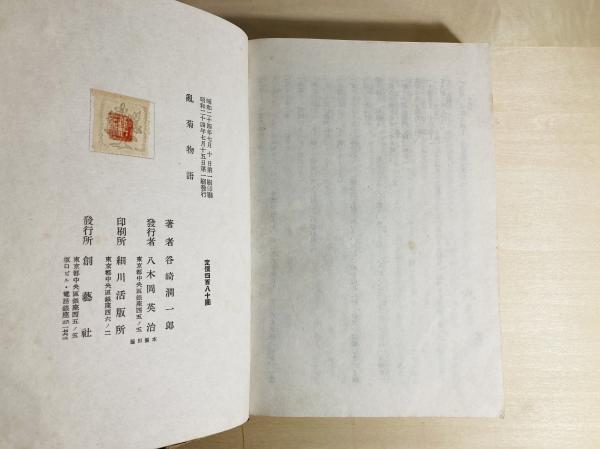 定價四百八十圓
昭和二十四年七月十日第一刷印刷
昭和二十四年七月十五日第一刷發行
亂菊物語
著者 谷崎潤一郎
發行者 八木岡英治
東京都中央區銀座西五ノ五
印刷所 細川活版所
東京都中央區銀座西六ノ二
發行所 創藝社
東京都中央區銀座西五ノ五